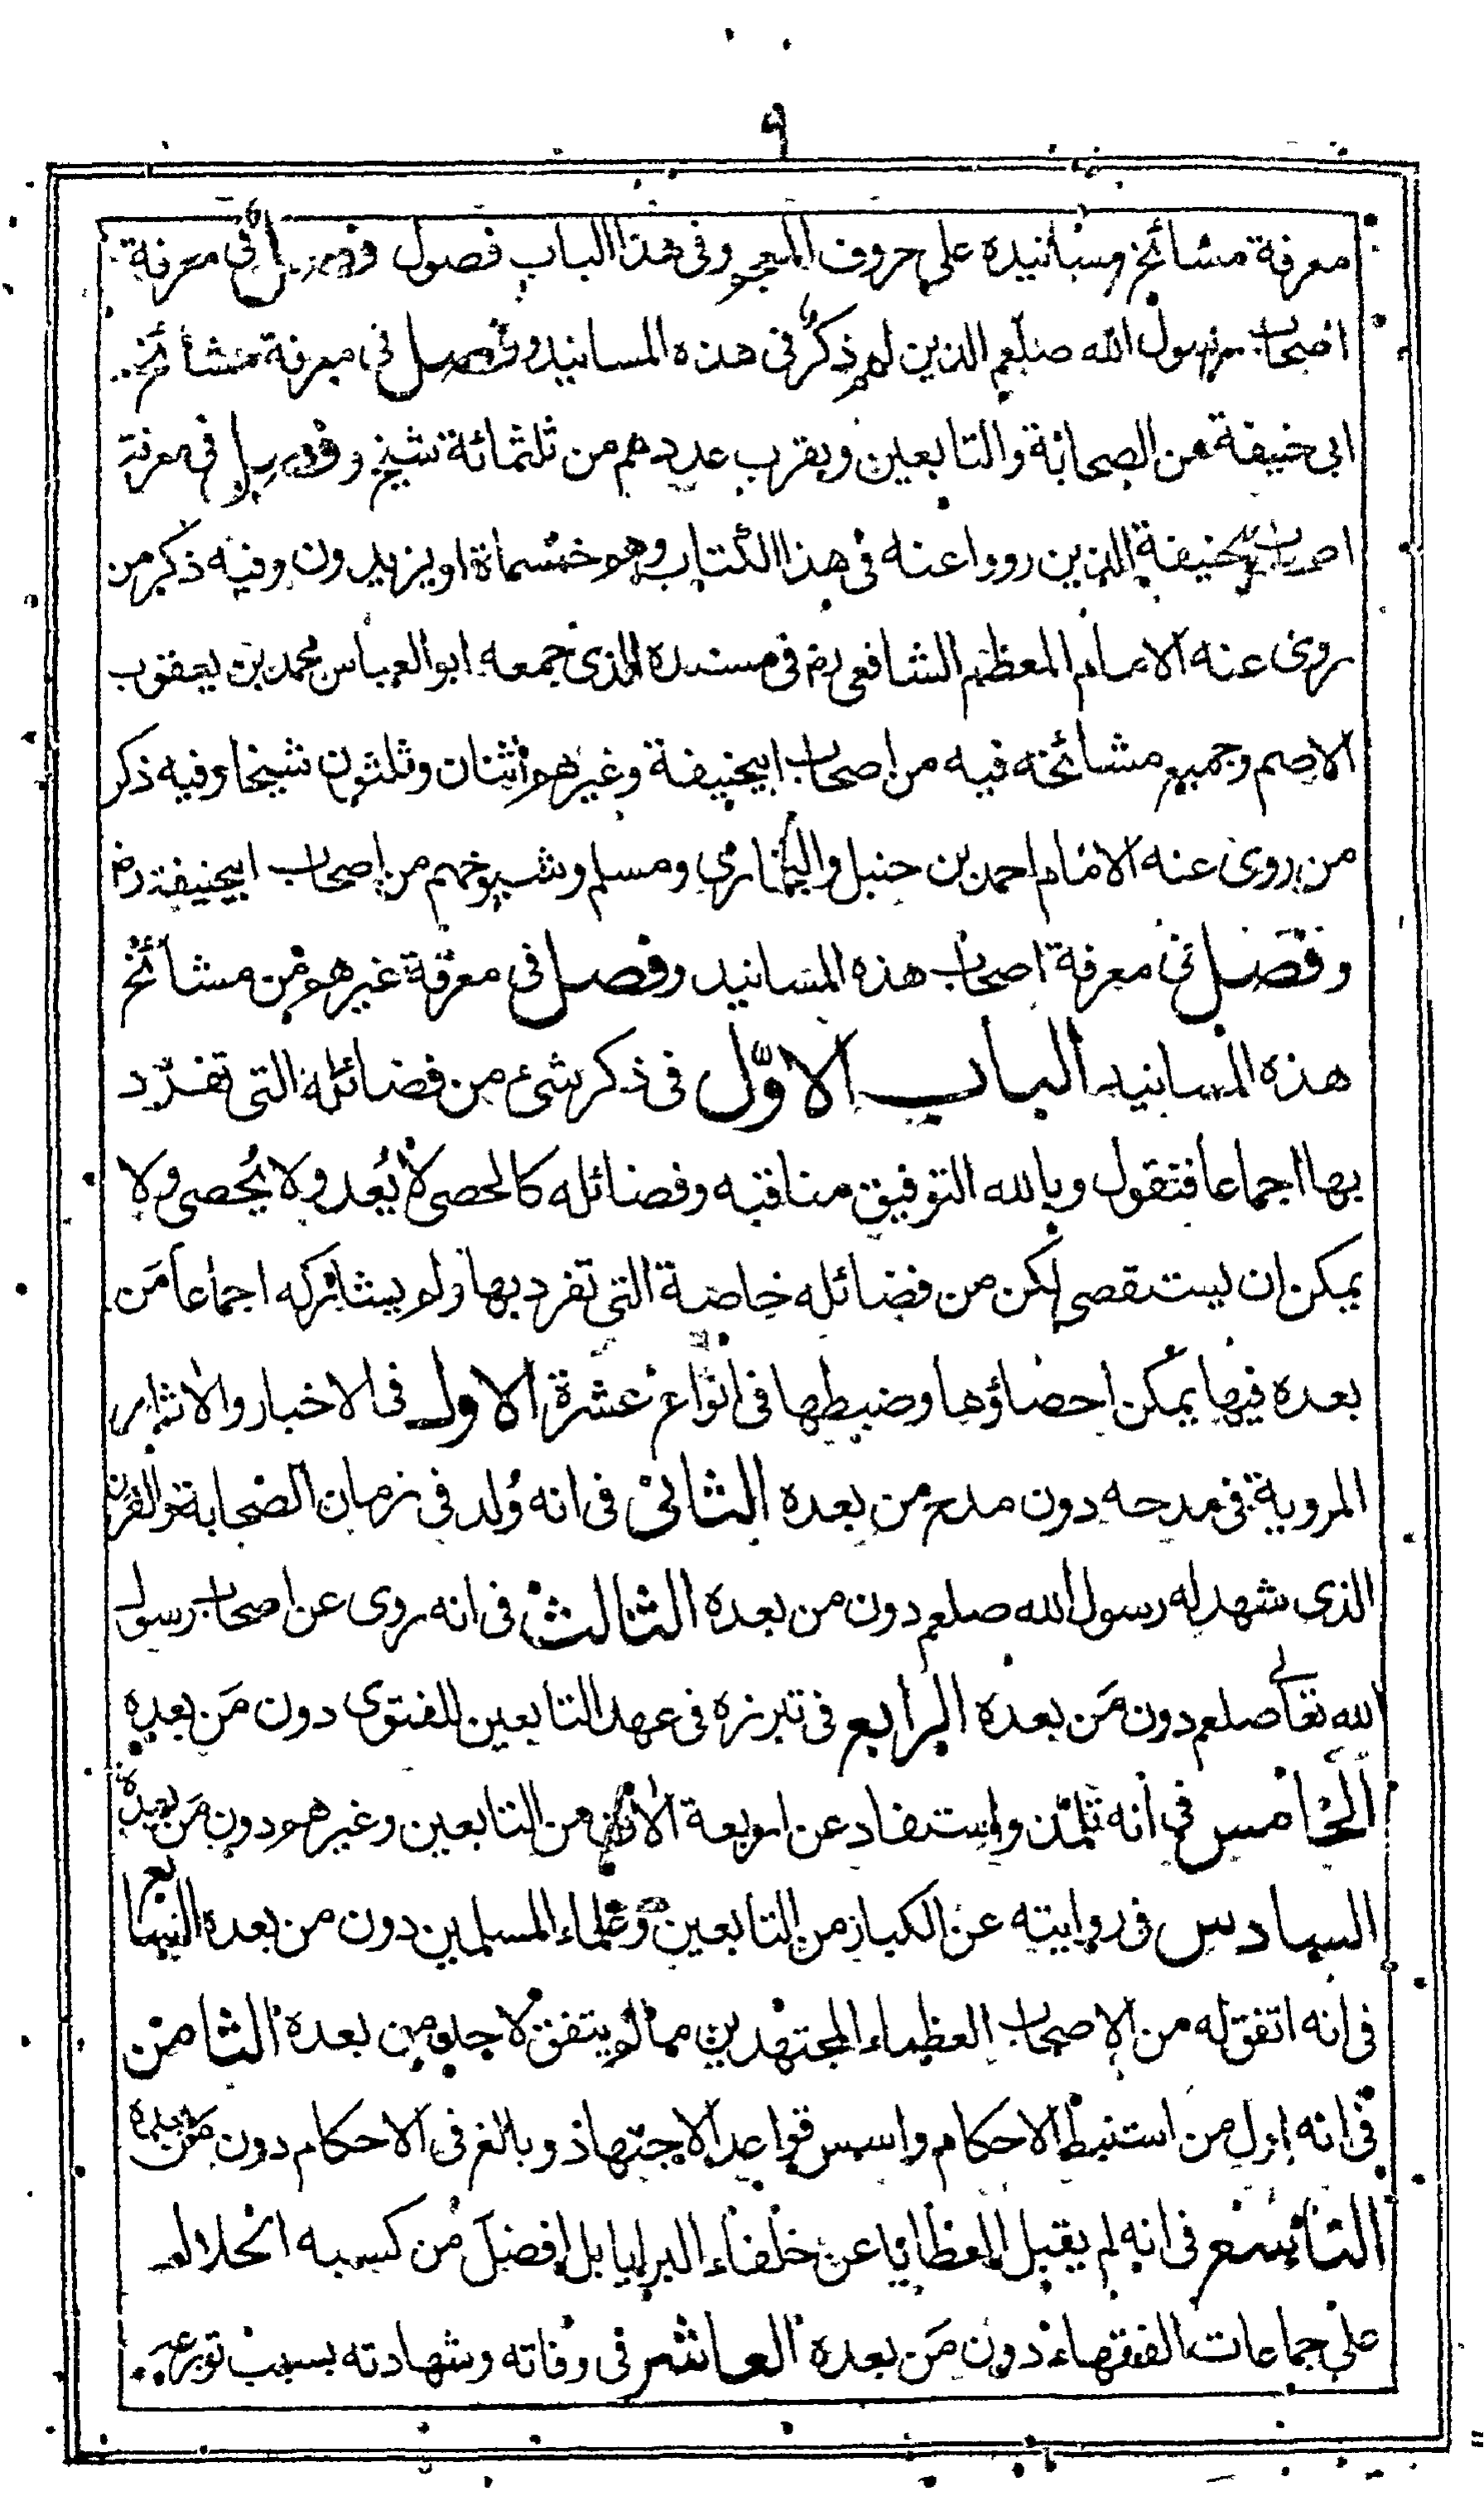 ٩
معرفة مشائخ مسانيده على حروف المعجم وفى هذا الباب فصول فصل فى معرفة
اصحاب رسول الله صلعم الذين لهم ذكر فى هذه المسانيد وفصل فى معرفة مشائخ
ابى حنيفة من الصحابة والتابعين ويقرب عددهم من ثلثمائة شيخ وفصل فى معرفة
اصحاب ابيحنيفة الذين رووا عنه فى هذا الكتاب وهم خمسماة او يزيدون وفيه ذكر من
روى عنه الامام المعظم الشافعى رح فى مسنده الذى جمعه ابو العباس محمد بن يعقوب
الاصم وجميع مشائخه فيه من اصحاب ابيحنيفة وغيرهم اثنان وثلثون شيخا وفيه ذكر
من روى عنه الامام احمد بن حنبل والبخارى ومسلم وشيوخهم من اصحاب ابيحنيفة رض
وفصل فى معرفة اصحاب هذه المسانيد وفصل فى معرفة غيرهم من مشائخ
هذه المسانيد الباب الاوّل فى ذكر شئ من فضائله التى تفرّد
بها اجماعا فنقول وبالله التوفيق مناقبه وفضائله كالحصى لا يُعد ولا يُحصى ولا
يمكن ان يستقصى لكن من فضائله خاصة التى تفرد بها ولم يشاركه اجماعاً مَن
بعده فيها يمكن احصاؤها وضبطها فى انواع عشرة الاول فى الاخبار والاثار
المروية فى مدحه دون مدح من بعده الثانى فى انه وُلد فى زمان الصحابة والقرن
الذى شهد له رسول الله صلعم دون من بعده الثالث فى انه روى عن اصحاب رسول
الله تعالى صلعم دون مَن بعده الرابع فى تبرزه فى عهد التابعين للفتوى دون مَن بعده
الخامس فى انه تلمّذ واستفاد عن اربعة الاف من التابعين وغيرهم دون مَن بعده
السادس فى روايته عن الكبار من التابعين وعلماء المسلمين دون من بعده السابع
فى انه اتفق له من الاصحاب العظماء المجتهدين مما لم يتفق لاحد من بعده الثامن
فى انه اول من استنبط الاحكام واسس قواعد الاجتهاد وبالغ فى الاحكام دون مَن بعده
التاسع فى انه لم يقبل العطايا عن خلفاء البرايا بل افضل من كسبه الحلال
على جماعات الفقهاء دون مَن بعده العاشر فى وفاته وشهادته بسبب تورعه